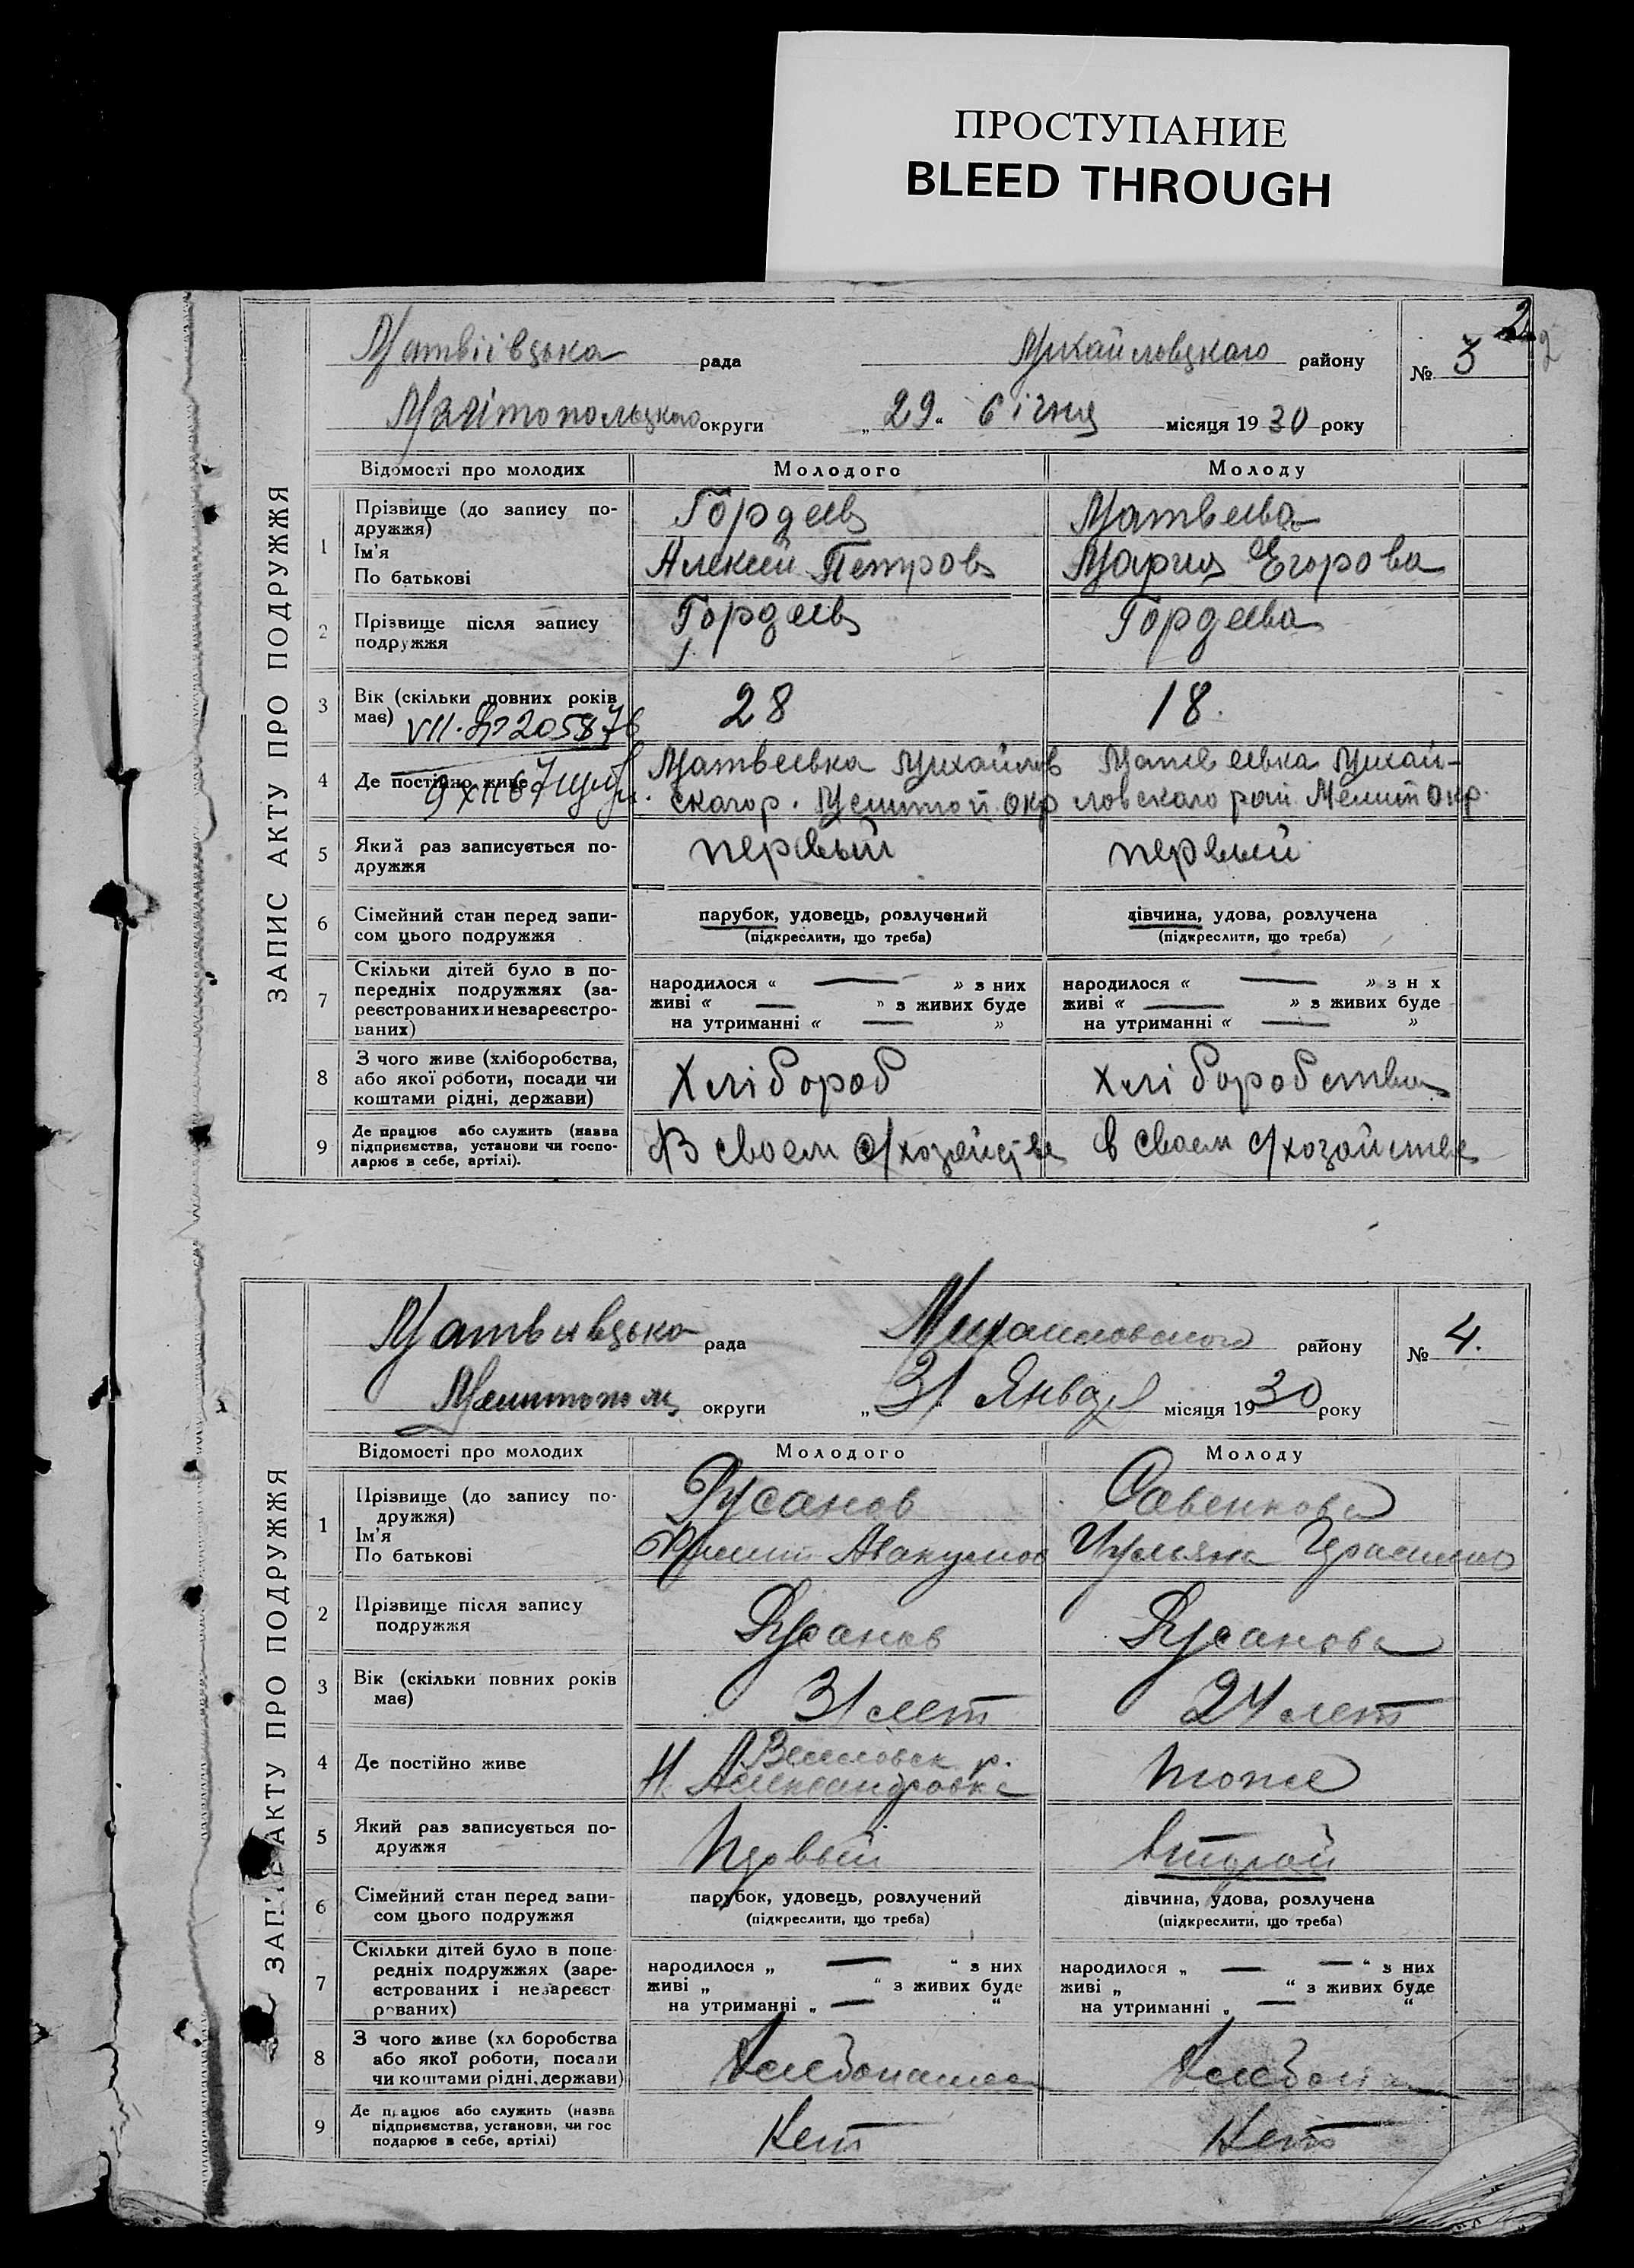 ПРОСТУПАНИЕ
BLEED THROUGH
2
2
ЗАПИС АКТУ ПРО ПОДРУЖЖЯ
Матвіївцька рада Михайловцкаго району № 3
округи „29“ січня місяця 1930 року
Відомості про молодих Молодого Молоду
1 Прізвище (до запису по-
дружжя)
Ім'я
По батькові
Гордеев Матвеева
Алексей Петров Мария Егорова
2 Прізвище після запису
подружжя
Гордеев Гордеева
3 Вік (скільки повних років
має)
28 18.
VII
4 Де постійно живе
Матвеевка Михайлов Матвеевка Михай-
скаго р. окр ловскаго рай. Мелит окр.
5 Який раз записується по-
дружжя
первый первый
6 Сімейний стан перед запи-
сом цього подружжя
парубок, удовець, розлучений дівчина, удова, розлучена
(підкреслити, що треба) (підкреслити, що треба)
7 Скільки дітей було в по-
передніх подружжях (за-
реєстрованих и незареєстро-
ваних)
народилося « — » з них народилося « — » з н х
живі « — » з живих буде живі « — » з живих буде
на утриманні « — » на утриманні « — »
8 З чого живе (хліборобства,
або якої роботи, посади чи
коштами рідні, держави)
Хлібороб Хліборобства
9 Де працює або служить (назва
підприємства, установи чи госпо-
дарює в себе, артілі).
В своем с/хозяйстве в своем с/хозяйстве
ЗАПИС АКТУ ПРО ПОДРУЖЖЯ
рада Михайловского району № 4.
Мелитополь округи „31 Января місяця 1930 року
Відомості про молодих Молодого Молоду
1 Прізвище (до запису по-
дружжя)
Ім'я
По батькові
Русанов Савенкова
Авакумов Ульяна
2 Прізвище після запису
подружжя
Русанов Русанова
3 Вік (скільки повних років
має)
31 лет 24 лет
4 Де постійно живе
Веселовск р.
Н. Александровка
тоже
5 Який раз записується по-
дружжя
Первый второй
6 Сімейний стан перед запи-
сом цього подружжя
парубок, удовець, розлучений дівчина, удова, розлучена
(підкреслити, що треба) (підкреслити, що треба)
7 Скільки дітей було в попе-
редніх подружжях (заре-
єстрованих і незареєст
рованих)
народилося „ — “ з них народилося „ — — “ з них
живі „ “ з живих буде живі „ “ з живих буде
на утриманні „ — “ на утриманні „ — “
8 З чого живе (хл боробства
або якої роботи, посади
чи коштами рідні, держави)
9 Де працює або служить (назва
підприємства, установи, чи гос
подарює в себе, артілі)
Нет Нет